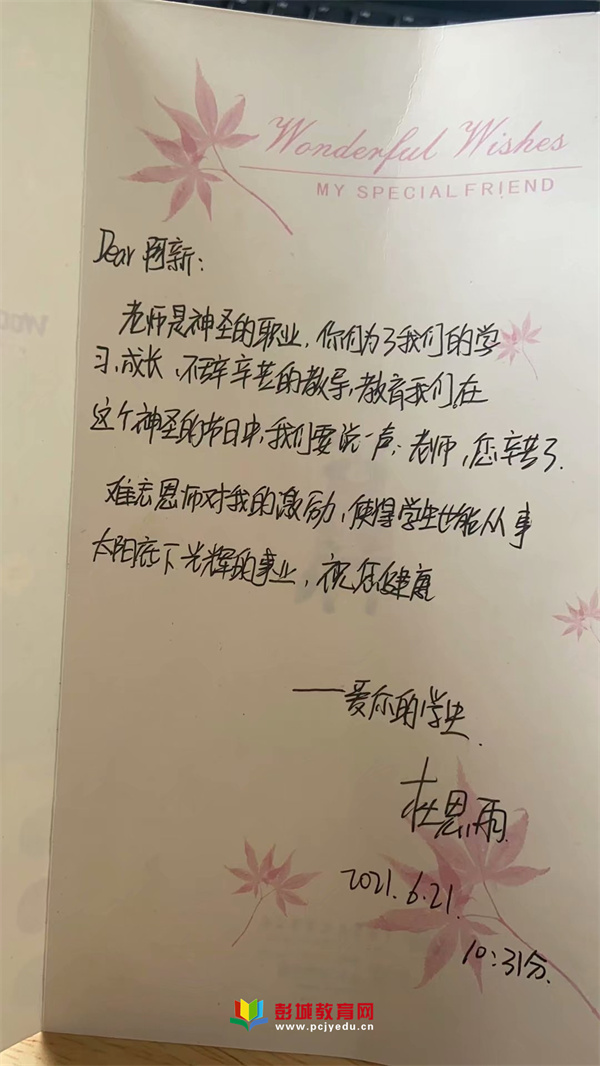 Wonderful Wishes
MY SPECIAL FRIEND
Dear 阿新：
老师是神圣的职业，你们为了我们的学
习、成长，不辞辛苦的教导，教育我们，在
这个神圣的节日中，我们要说一声：老师，您辛苦了.
难忘恩师对我的激励，使得学生也能从事
太阳底下光辉的事业，祝您健康
——爱你的学生.
杜恩雨
2021.6.21.
10:31分.
彭城教育网
www.pcjyedu.cn